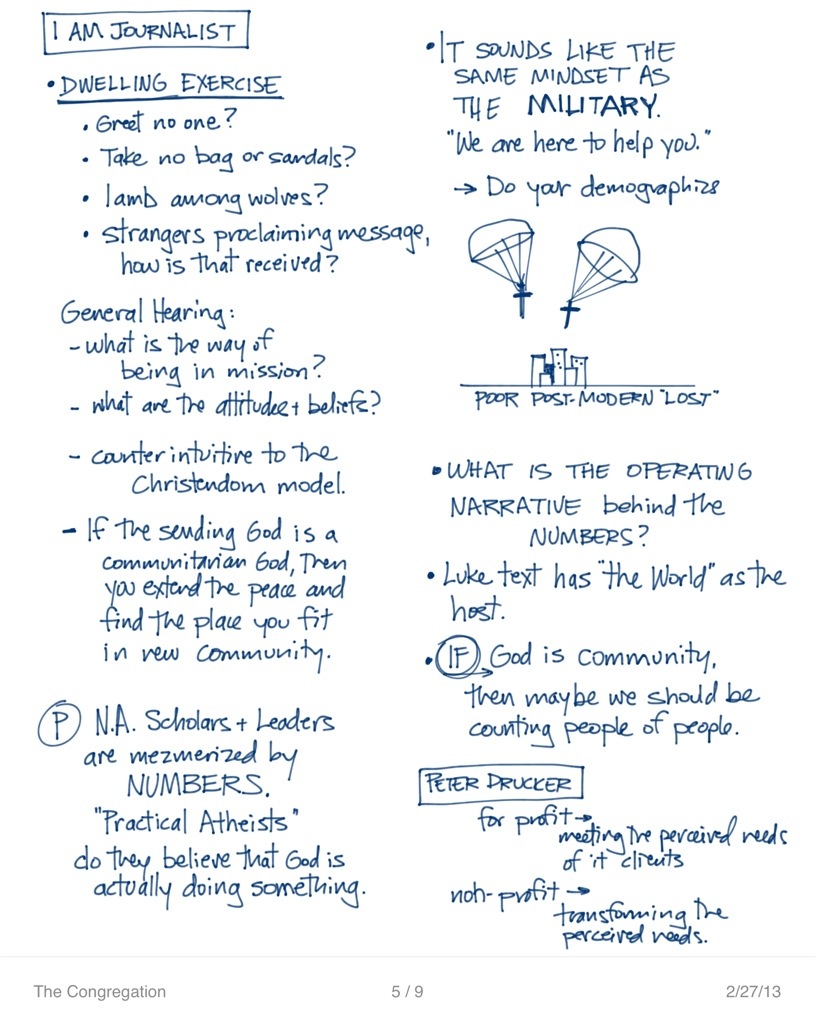 I AM JOURNALIST
• DWELLING EXERCISE
• Greet no one?
• Take no bag or sandals?
• lamb among wolves?
• strangers proclaiming message,
how is that received?
General Hearing:
- what is the way of
being in mission?
- what are the attitudes + beliefs?
- counter intuitive to the
Christendom model.
- If the sending God is a
communitarian God, then
you extend the peace and
find the place you fit
in new community.
P N.A. Scholars + Leaders
are mezmerized by
NUMBERS.
"Practical Atheists"
do they believe that God is
actually doing something.
• IT SOUNDS LIKE THE
SAME MINDSET AS
THE MILITARY.
"We are here to help you."
→ Do your demographics
POOR POST-MODERN "LOST"
• WHAT IS THE OPERATING
NARRATIVE behind the
NUMBERS?
• Luke text has "the World" as the
host.
• IF God is community,
then maybe we should be
counting people of people.
PETER DRUCKER
for profit →
meeting the perceived needs
of it clients
non-profit →
transforming the
perceived needs.
The Congregation
5 / 9
2/27/13